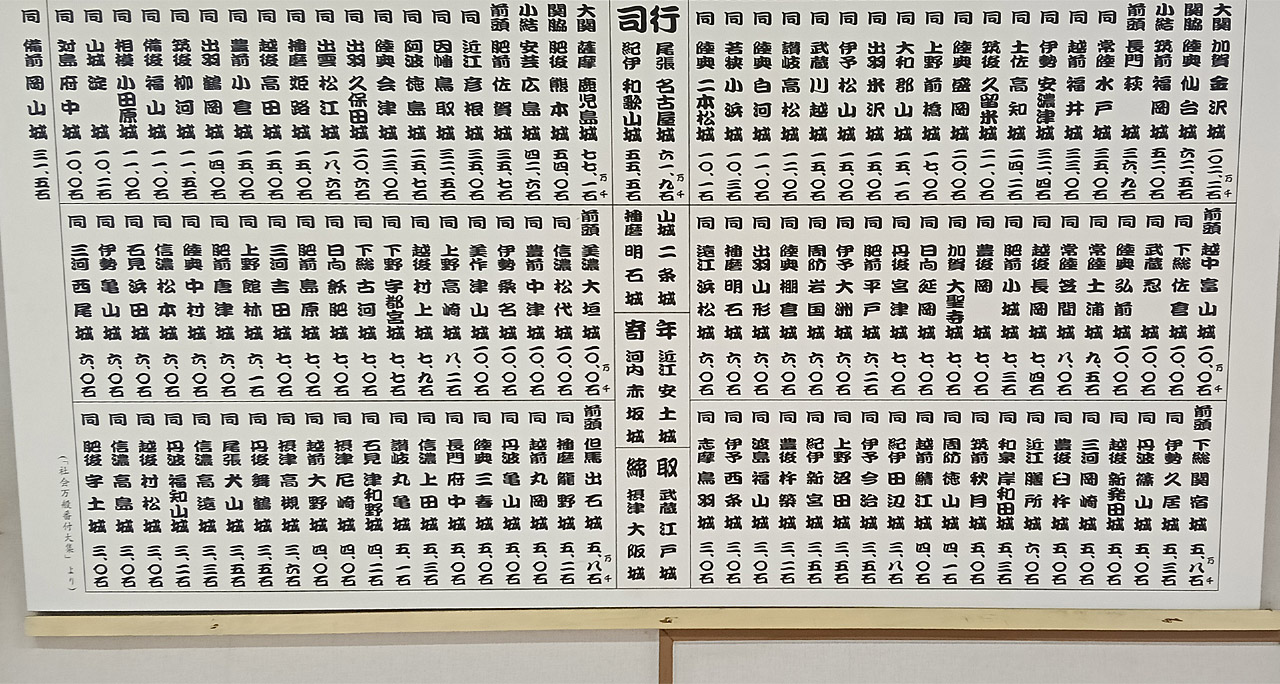 大関 加賀 金沢 城 一〇二、二石
関脇 陸奥 仙台 城 六二、五石
小結 筑前 福岡 城 五二、〇石
前頭 長門 萩 城 三六、九石
同 常陸 水戸 城 三五、〇石
同 越前 福井 城 三三、〇石
同 伊勢 安濃津 城 三二、四石
同 土佐 高知 城 二四、二石
同 筑後 久留米 城 二一、〇石
同 陸奥 盛岡 城 二〇、〇石
同 上野 前橋 城 一七、〇石
同 大和 郡山 城 一五、一石
同 出羽 米沢 城 一五、〇石
同 伊予 松山 城 一五、〇石
同 武蔵 川越 城 一五、〇石
同 讃岐 高松 城 一二、〇石
同 陸奥 白河 城 一一、〇石
同 若狭 小浜 城 一〇、三石
同 陸奥 二本松 城 一〇、一石
行司
尾張 名古屋城 六一、九石
紀伊 和歌山城 五五、五石
大関 薩摩 鹿児島城 七七、一石
関脇 肥後 熊本 城 五四、〇石
小結 安芸 広島 城 四二、六石
前頭 肥前 佐賀 城 三五、七石
同 近江 彦根 城 三五、〇石
同 因幡 鳥取 城 三二、五石
同 阿波 徳島 城 二五、七石
同 陸奥 会津 城 二三、〇石
同 出羽 久保田城 二〇、六石
同 出雲 松江 城 一八、六石
同 播磨 姫路 城 一五、〇石
同 越後 高田 城 一五、〇石
同 豊前 小倉 城 一五、〇石
同 出羽 鶴岡 城 一四、〇石
同 筑後 柳河 城 一一、五石
同 備後 福山 城 一一、〇石
同 相模 小田原 城 一一、〇石
同 山城 淀 城 一〇、二石
同 対島 府中 城 一〇、〇石
同 備前 岡山 城 三一、五石
前頭 越中 富山 城 一〇、〇石
同 下総 佐倉 城 一一、〇石
同 武蔵 忍 城 一〇、〇石
同 陸奥 弘前 城 一〇、〇石
同 常陸 土浦 城 九、五石
同 常陸 笠間 城 八、〇石
同 越後 長岡 城 七、四石
同 肥前 小城 城 七、三石
同 豊後 岡 城 七、〇石
同 加賀 大聖寺城 七、〇石
同 日向 延岡 城 七、〇石
同 丹後 宮津 城 七、〇石
同 肥前 平戸 城 六、二石
同 伊予 大洲 城 六、〇石
同 周防 岩国 城 六、〇石
同 陸奥 棚倉 城 六、〇石
同 出羽 山形 城 六、〇石
同 播磨 明石 城 六、〇石
同 遠江 浜松 城 六、〇石
山城 二条 城
播磨 明石 城
年寄
近江 安土 城
河内 赤坂 城
前頭 美濃 大垣 城 一〇、〇石
同 信濃 松代 城 一〇、〇石
同 豊前 中津 城 一〇、〇石
同 伊勢 桑名 城 一〇、〇石
同 美作 津山 城 一〇、〇石
同 上野 高崎 城 八、二石
同 越後 村上 城 七、九石
同 下野 宇都宮城 七、七石
同 下総 古河 城 七、〇石
同 日向 飫肥 城 七、〇石
同 肥前 島原 城 七、〇石
同 三河 吉田 城 七、〇石
同 上野 館林 城 六、一石
同 肥前 唐津 城 六、〇石
同 陸奥 中村 城 六、〇石
同 信濃 松本 城 六、〇石
同 石見 浜田 城 六、〇石
同 伊勢 亀山 城 六、〇石
同 三河 西尾 城 六、〇石
前頭 下総 関宿 城 五、八石
同 伊勢 久居 城 五、三石
同 丹波 篠山 城 五、〇石
同 越後 新発田 城 五、〇石
同 三河 岡崎 城 五、〇石
同 豊後 臼杵 城 五、〇石
同 近江 膳所 城 六、〇石
同 和泉 岸和田 城 五、三石
同 筑前 秋月 城 五、〇石
同 周防 徳山 城 四、一石
同 越前 鯖江 城 四、〇石
同 紀伊 田辺 城 三、八石
同 伊予 今治 城 三、五石
同 上野 沼田 城 三、五石
同 紀伊 新宮 城 三、五石
同 豊後 杵築 城 三、二石
同 渡島 福山 城 三、〇石
同 伊予 西条 城 三、〇石
同 志摩 鳥羽 城 三、〇石
取締
武蔵 江戸 城
摂津 大阪 城
前頭 但馬 出石 城 五、八石
同 播磨 龍野 城 五、二石
同 越前 丸岡 城 五、〇石
同 丹波 亀山 城 五、〇石
同 陸奥 三春 城 五、〇石
同 長門 府中 城 五、〇石
同 信濃 上田 城 五、三石
同 讃岐 丸亀 城 五、一石
同 石見 津和野 城 四、二石
同 摂津 尼崎 城 四、〇石
同 越前 大野 城 四、〇石
同 摂津 高槻 城 三、六石
同 丹後 舞鶴 城 三、五石
同 尾張 犬山 城 三、五石
同 信濃 高遠 城 三、三石
同 丹波 福知山 城 三、二石
同 越後 村松 城 三、〇石
同 信濃 高島 城 三、〇石
同 肥後 宇土 城 三、〇石
(「社会万般番付大集」より)